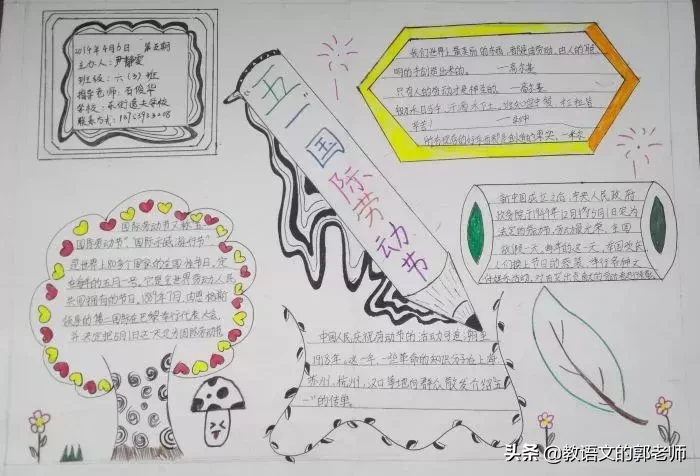 2019年4月6日 第五期
主办人:尹静雯
班级:六(3)班
指导老师:
学校:东街道大学校
联系方式:
五一国际劳动节
我们世界上最美丽的东西,都是由劳动、由人的聪
明的手创造出来的。 ——高尔基
只有人的劳动才是神圣的 ——高尔基
锄禾日当午,汗滴禾下土。谁知盘中餐,粒粒皆
辛苦!
新中国成立之后,中央人民政府
政务院于1949年12月将5月1日定为
法定的劳动节,全国
放假一天。每年的这一天,举国欢庆
人们换上节日的盛装,
国际劳动节又称"五一
国际劳动节""国际示威游行节"
是世界上80多个国家的全国性节日,定
在每年的五月一号。它是全世界劳动人民
共同拥有的节日。1889年7月,由恩格斯
领导的第二国际在巴黎举行代表大会,
并决定把5月1日这一天定为国际劳动节
中国人民庆祝劳动节的活动可追溯至
1918年。这一年,一些革命的知识分子在上海
苏州,杭州,汉口等地向群众散发介绍"五
一"的传单。
头条 @教语文的郭老师